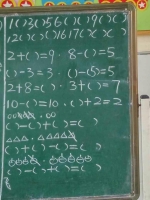 11()13()56()()19()()
12()()()1617()()()
2+()=9. 8-()=5
()-3=3. ()-(5)=5
2+8=() 3+()=7
10-()=10. ()+2=2
()-()+()=()
()+()-()=()
()-()+()=()